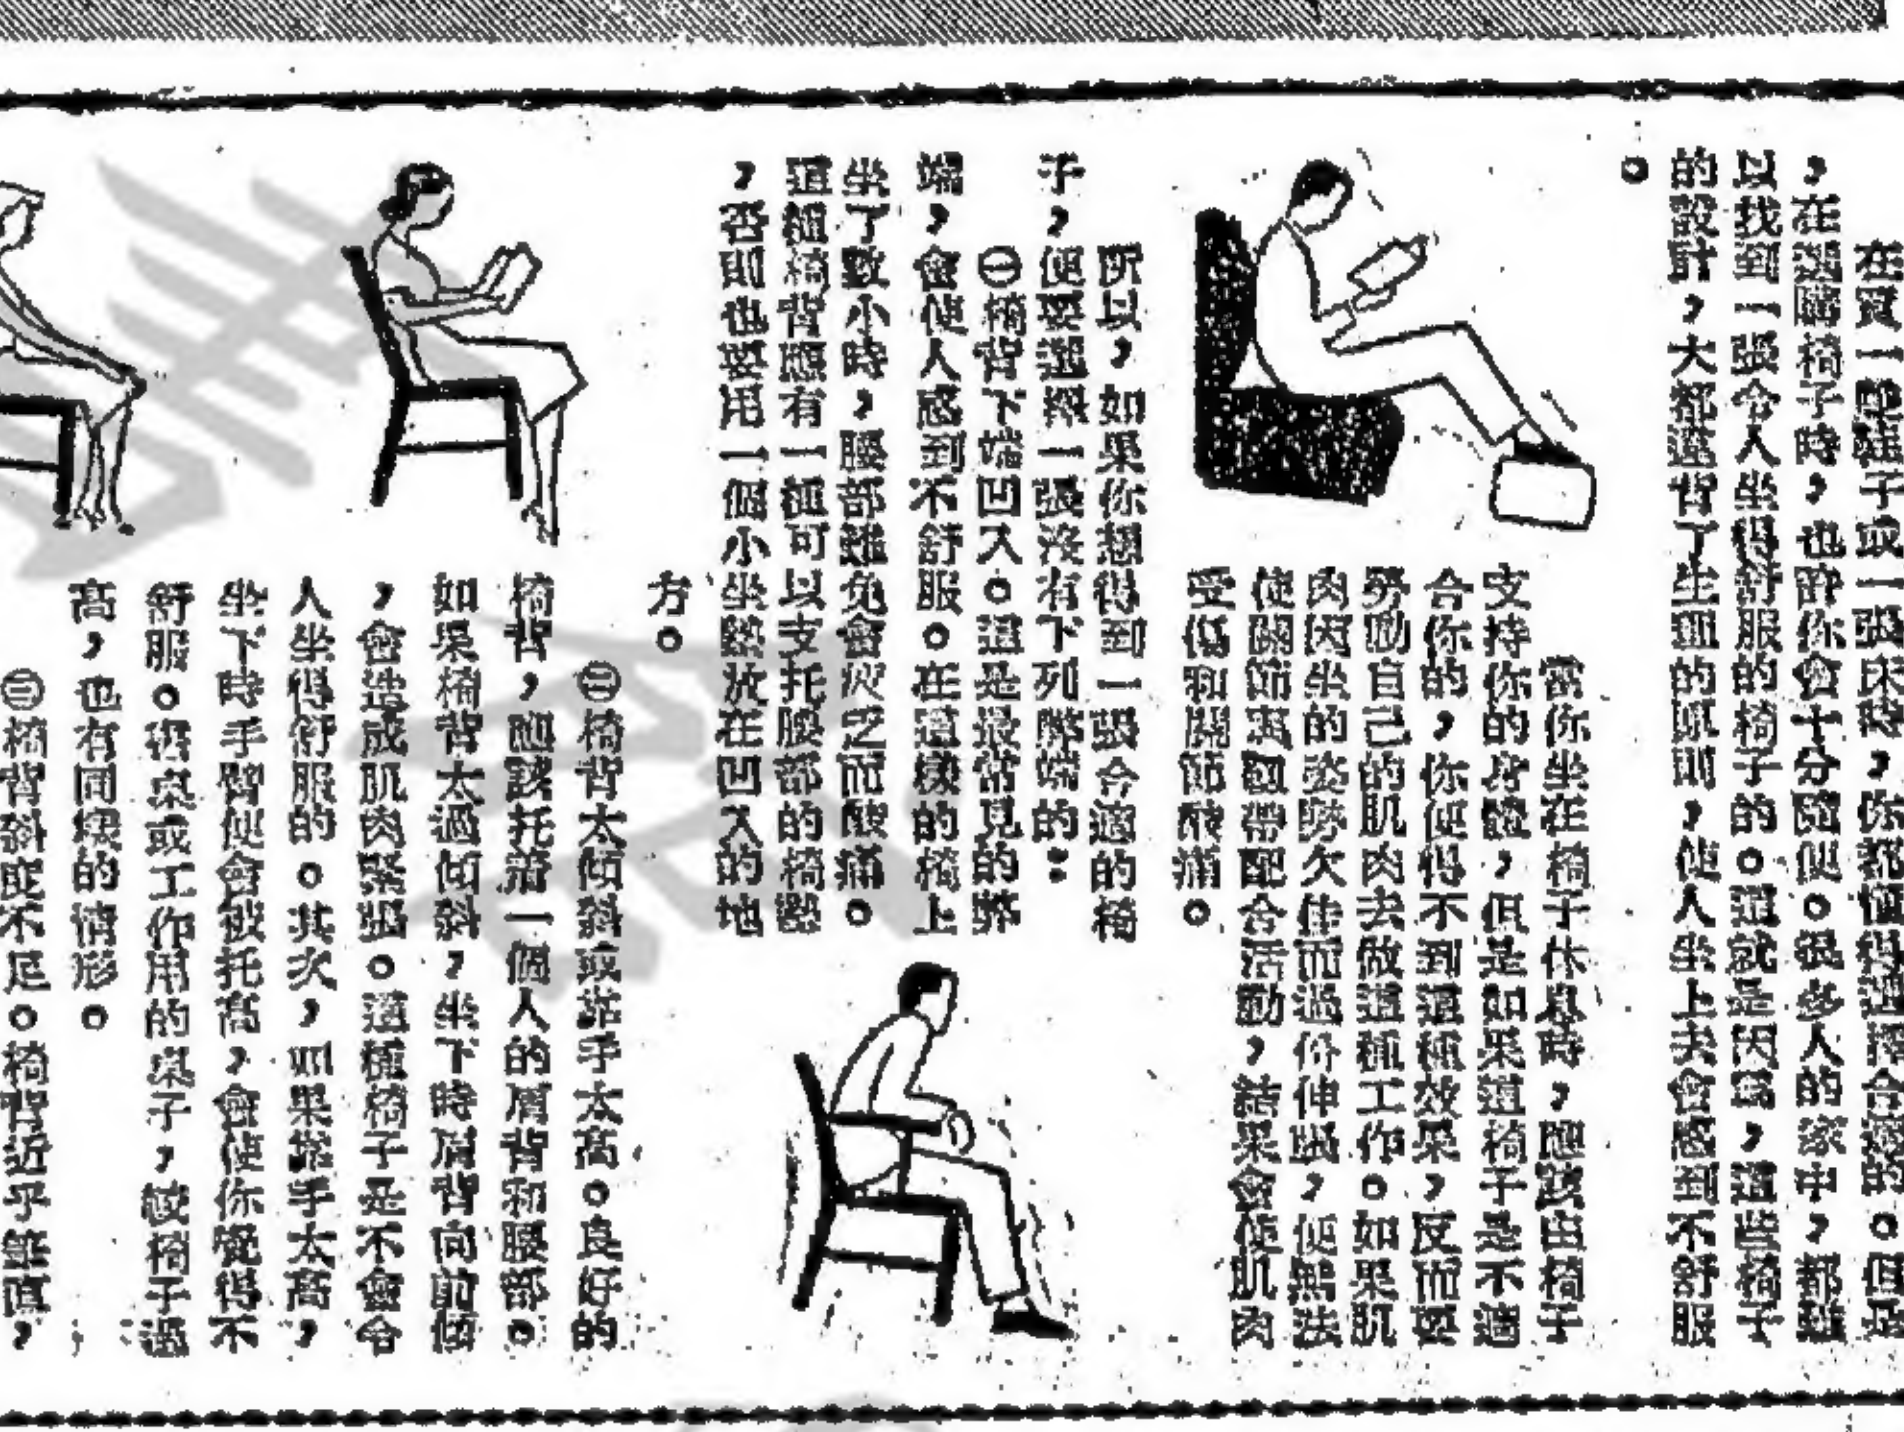 在買一雙鞋子或一張床時，你都懂得選擇合適的。但是
，在選購椅子時，也許你會十分隨便。很多人的家中，都難
以找到一張令人坐得舒服的椅子的。這就是因為，這些椅子
的設計，大都違背了生理的原則，使人坐上去會感到不舒服
。
當你坐在椅子休息時，應該由椅子
支持你的身體，但是如果這椅子是不適
合你的，你便得不到這種效果，反而要
勞動自己的肌肉去做這種工作。如果肌
肉因坐的姿勢欠佳而過份伸張，便無法
使關節與韌帶配合活動，結果會使肌肉
受傷和關節酸痛。
所以，如果你想得到一張合適的椅
子，便要選擇一張沒有下列弊端的：
㊀椅背下端凹入。這是最常見的弊
端，會使人感到不舒服。在這樣的椅上
坐了數小時，腰部難免會疲乏而酸痛。
這種椅背應有一種可以支托腰部的椅墊
，否則也要用一個小坐墊放在凹入的地
方。
㊁椅背太傾斜或扶手太高。良好的
椅背，應該托着一個人的肩背和腰部。
如果椅背太過傾斜，坐下時肩背向前傾
，會造成肌肉緊張。這種椅子是不會令
人坐得舒服的。其次，如果扶手太高，
坐下時手臂便會被托高，會使你覺得不
舒服。書桌或工作用的桌子，較椅子過
高，也有同樣的情形。
㊂椅背斜度不足。椅背近乎垂直，